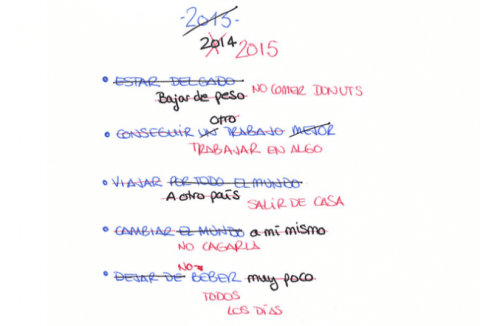 -2013-
2014 2015
• ESTAR DELGADO
Bajar de peso NO COMER DONUTS
otro
• CONSEGUIR UN TRABAJO MEJOR
TRABAJAR EN ALGO
• VIAJAR POR TODO EL MUNDO
A otro país SALIR DE CASA
• CAMBIAR EL MUNDO a mí mismo
NO CAGARLA
NO
• DEJAR DE BEBER muy poco
TODOS
LOS DÍAS